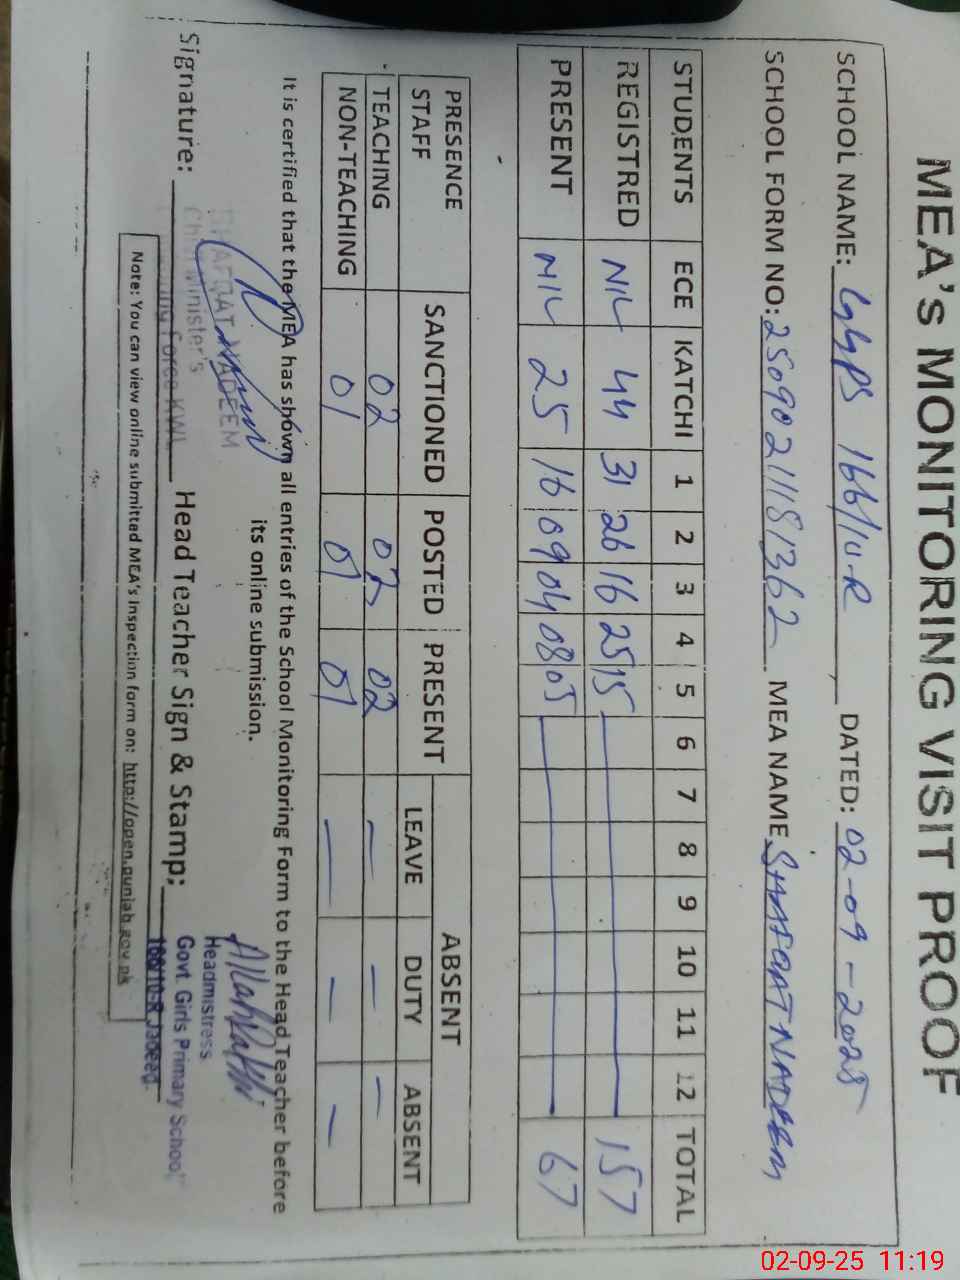 MEA's MONITORING VISIT PROOF
SCHOOL NAME: GGPS 166/10-R DATED: 02-09-2025
SCHOOL FORM NO: 25090211181362 MEA NAME SHAFQAT NADEEM
STUDENTS ECE KATCHI 1 2 3 4 5 6 7 8 9 10 11 12 TOTAL
REGISTRED NIL 44 31 26 16 25 15 157
PRESENT NIL 25 16 09 04 08 05 67
PRESENCE STAFF SANCTIONED POSTED PRESENT ABSENT
LEAVE DUTY ABSENT
TEACHING 02 02 02 — — —
NON-TEACHING 01 01 01 — — —
It is certified that the MEA has shown all entries of the School Monitoring Form to the Head Teacher before
its online submission.
SHAFQAT NADEEM
Chief Minister's
Monitoring Force KWL
Signature: Head Teacher Sign & Stamp:
Headmistress
Govt. Girls Primary School
166/10-R Jadeed
Note: You can view online submitted MEA's Inspection form on: http://open.punjab.gov.pk
02-09-25 11:19